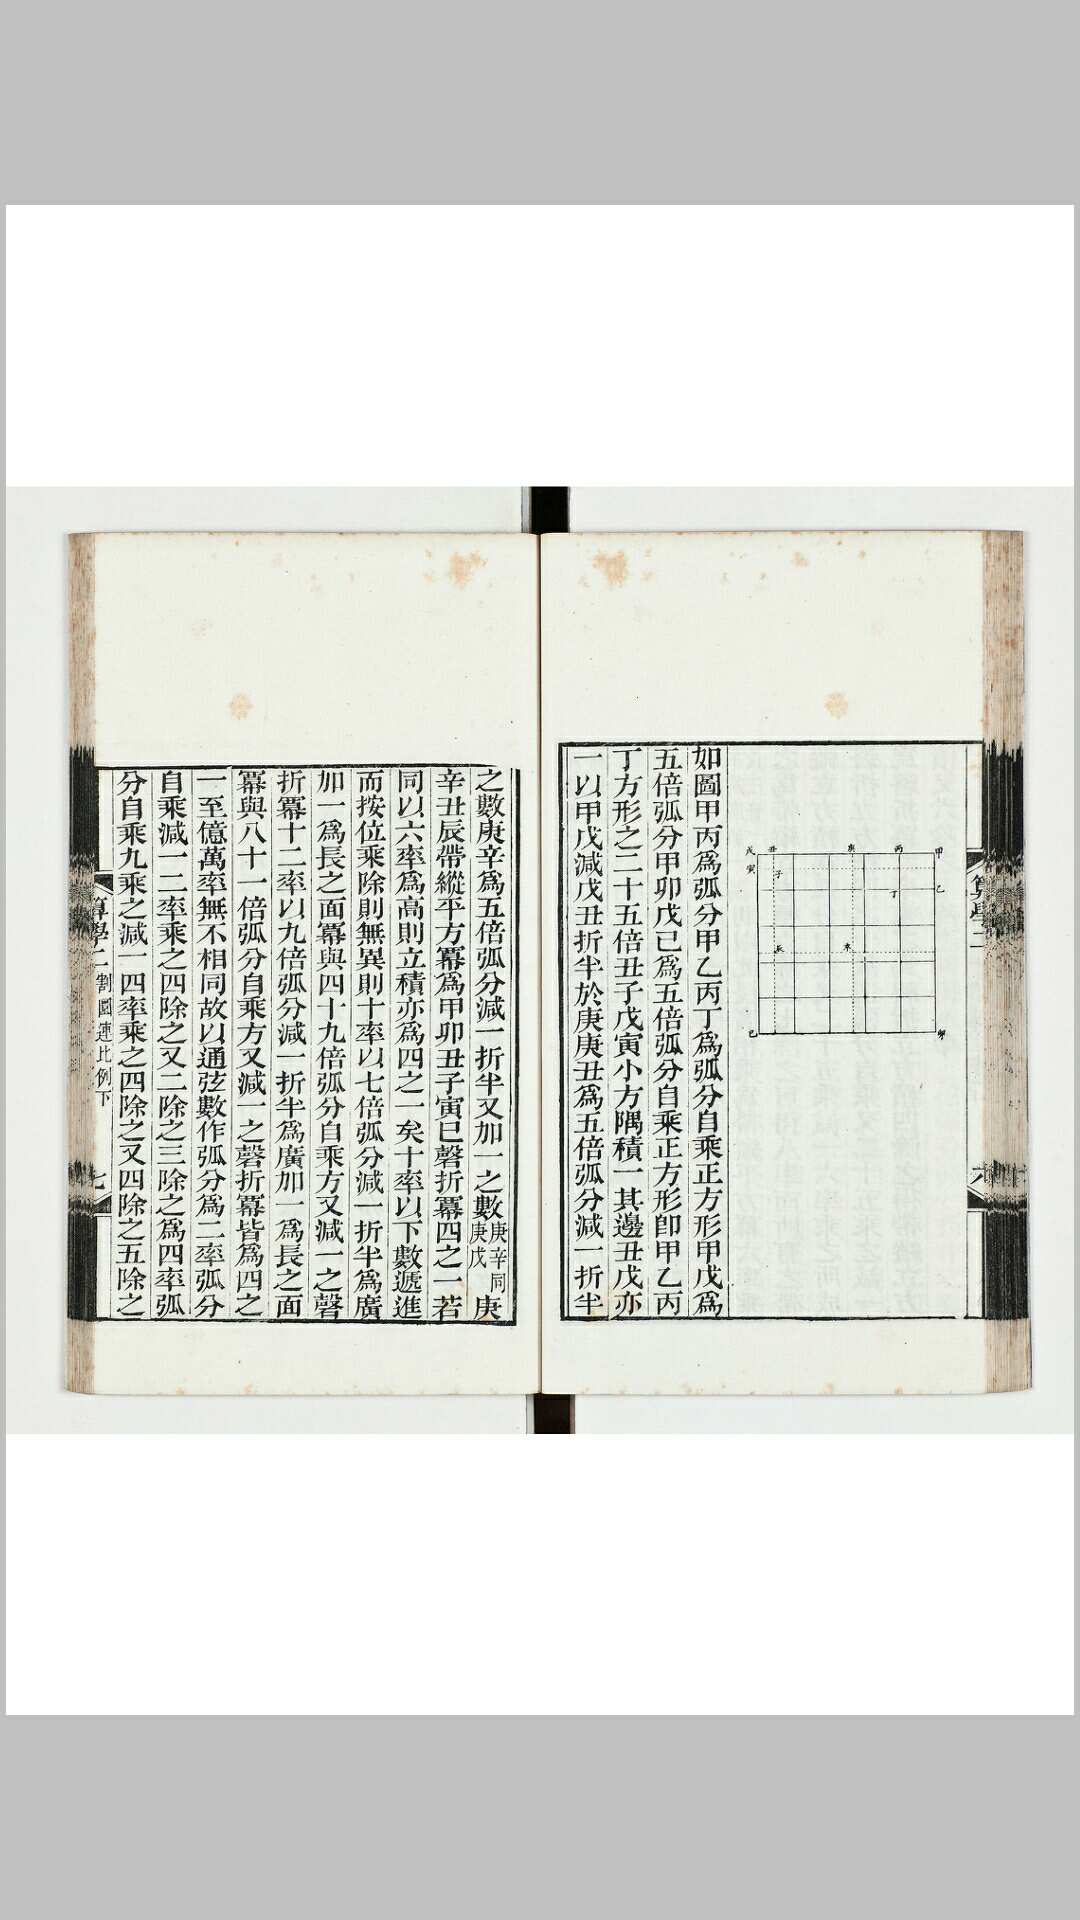 甲
丙
庚
丑
戊
寅
子
丁
乙
辰
未
卯
己
如圖甲丙爲弧分甲乙丙丁爲弧分自乘正方形甲戊爲
五倍弧分甲卯戊己爲五倍弧分自乘正方形卽甲乙丙
丁方形之二十五倍丑子戊寅小方隅積一其邊丑戊亦
一以甲戊減戊丑折半於庚庚丑爲五倍弧分減一折半
算學二
六
之數庚辛爲五倍弧分減一折半又加一之數庚辛同庚戊庚
辛丑辰帶縱平方冪爲甲卯丑子寅巳磬折冪四之一若
同以六率爲高則立積亦爲四之一矣十率以下數遞進
而按位乘除則無異則十率以七倍弧分減一折半爲廣
加一爲長之面冪與四十九倍弧分自乘方又減一之磬
折冪十二率以九倍弧分減一折半爲廣加一爲長之面
冪與八十一倍弧分自乘方又減一之磬折冪皆爲四之
一至億萬率無不相同故以通弦數作弧分爲二率弧分
自乘減一二率乘之四除之又二除之三除之爲四率弧
分自乘九乘之減一四率乘之四除之又四除之五除之
算學二 割圜連比例下
七